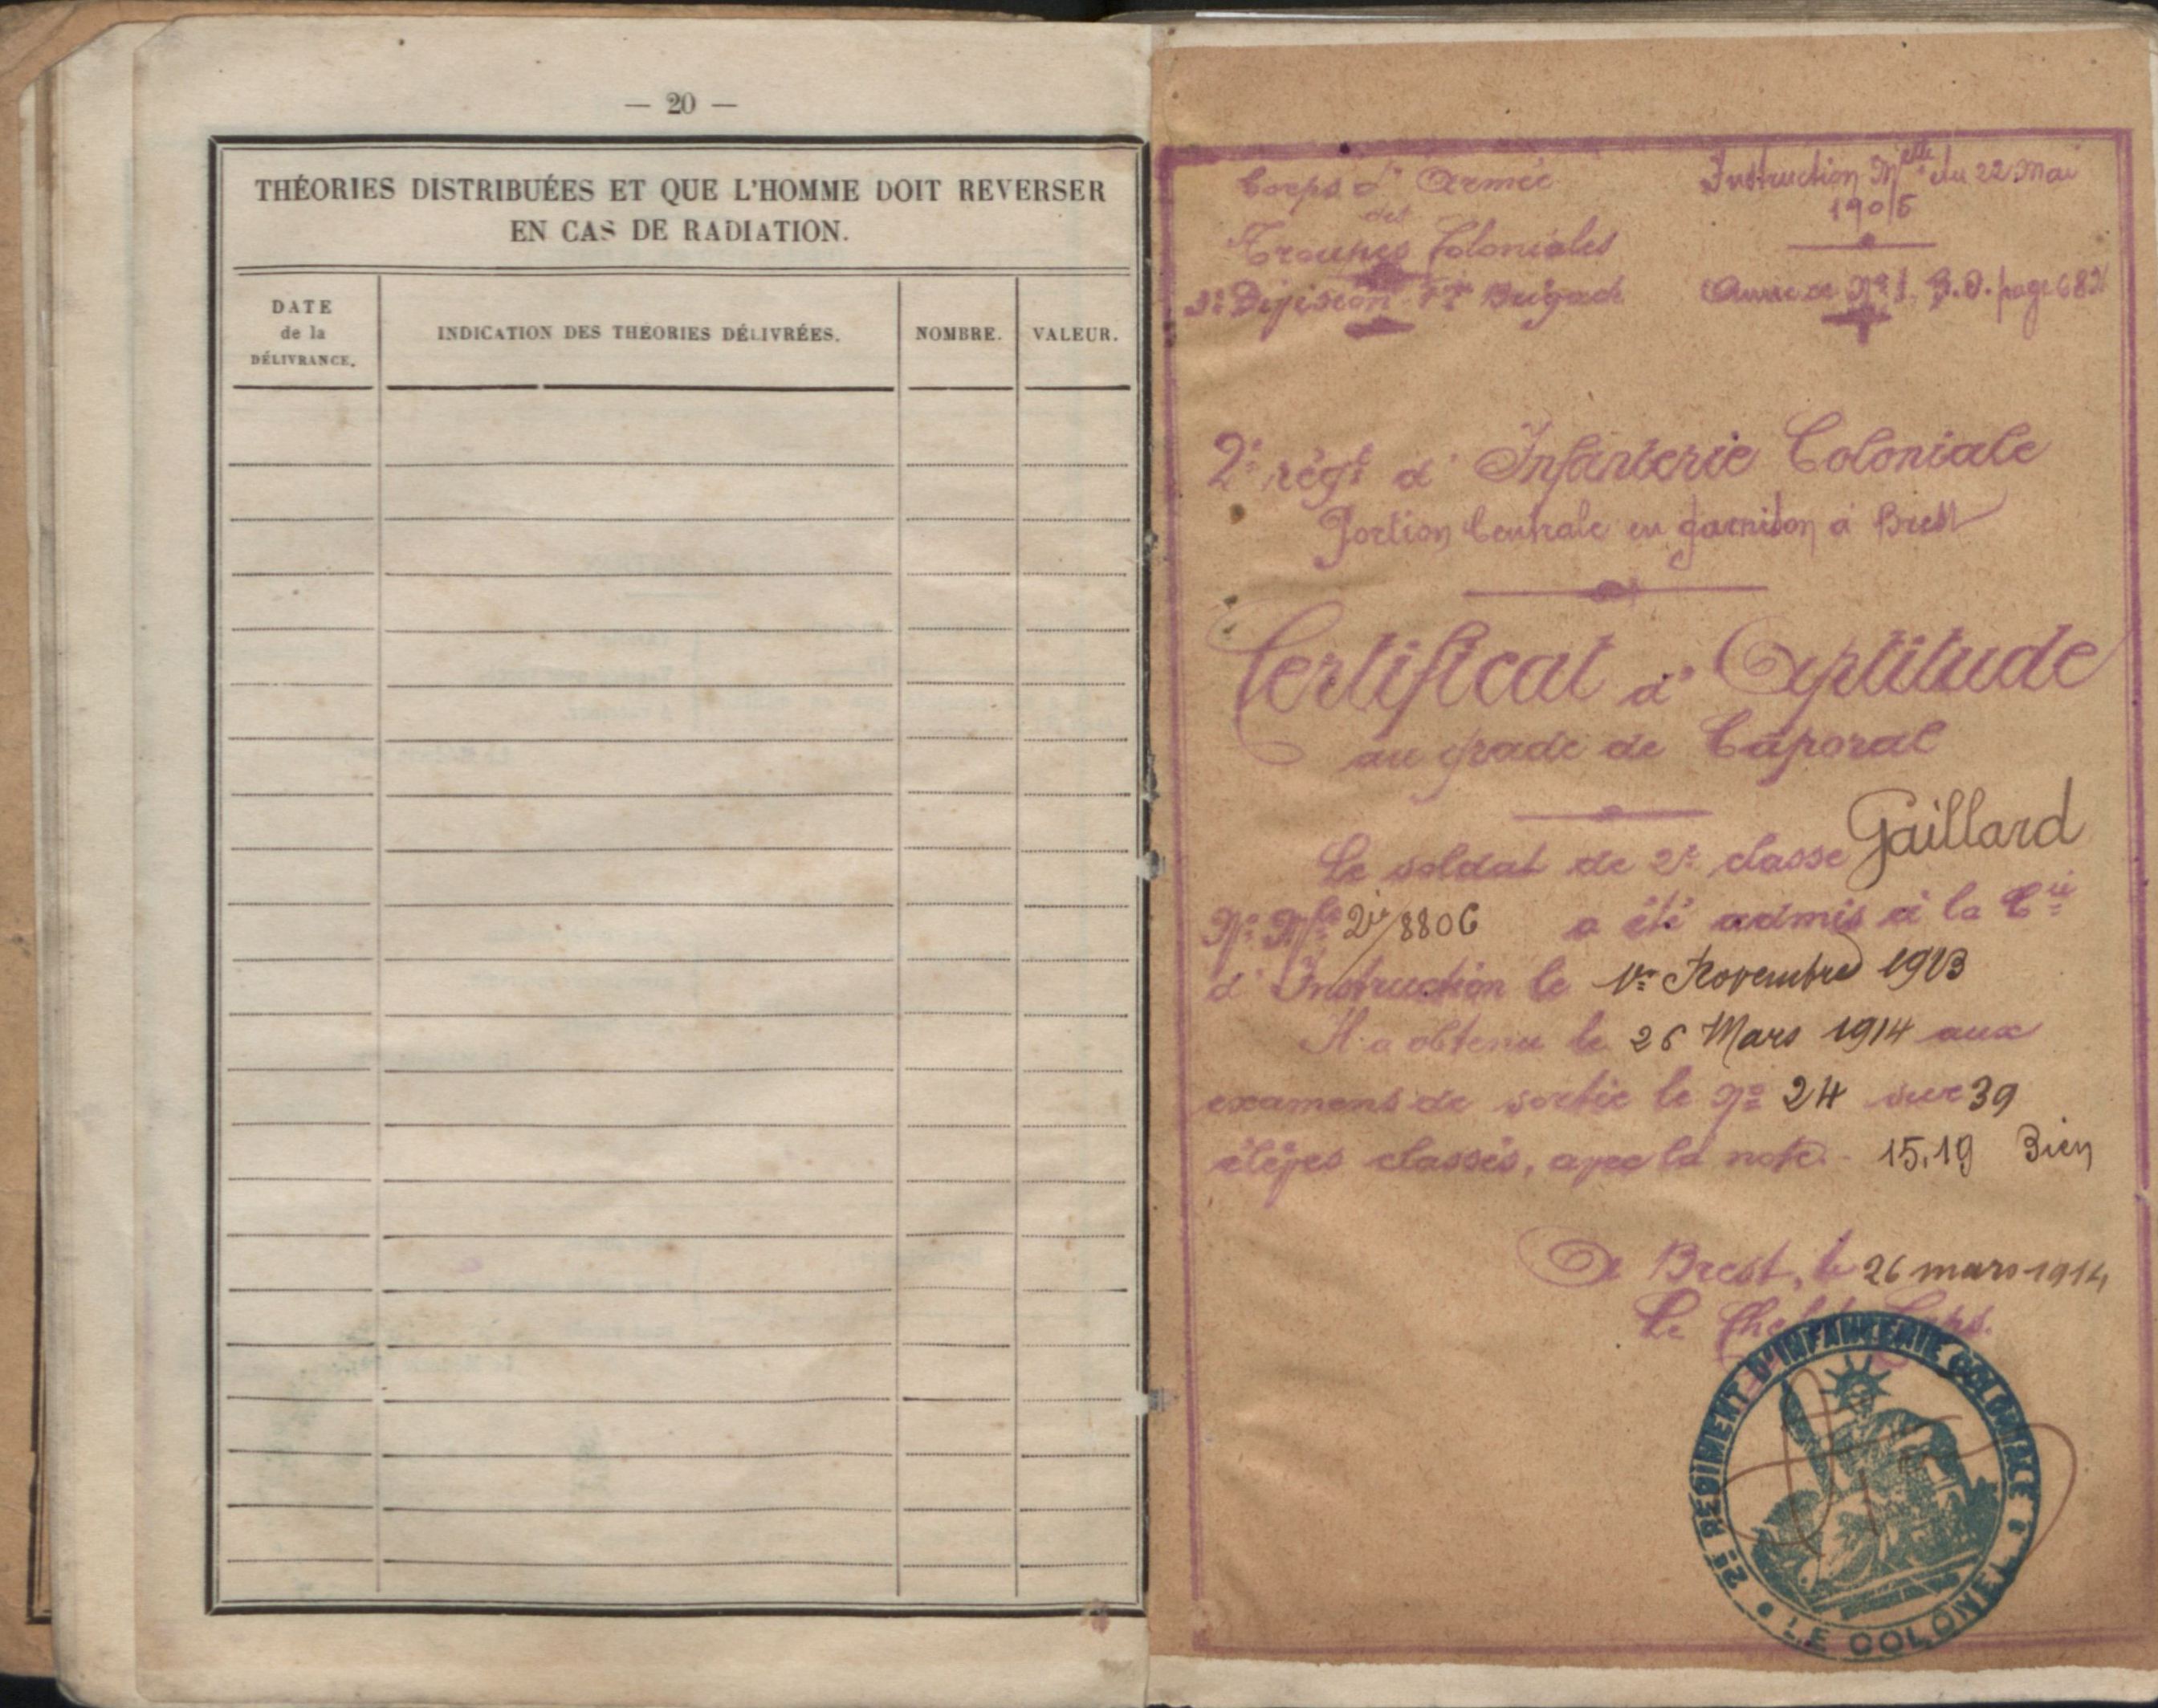 — 20 —
THÉORIES DISTRIBUÉES ET QUE L'HOMME DOIT REVERSER
EN CAS DE RADIATION.
DATE
de la
DÉLIVRANCE.
INDICATION DES THÉORIES DÉLIVRÉES.
NOMBRE.
VALEUR.
Corps d'Armée
des
Troupes Coloniales
2e Division Brigade
Instruction Melle du 22 Mai
1905
Annexe No 1. B.O. page 682
2e régt d'Infanterie Coloniale
Portion Centrale en garnison à Brest
Certificat d'Aptitude
au grade de Caporal
Le soldat de 2e classe Gaillard
No Mle 8806 a été admis à la Cie
d'Instruction le 1er Novembre 1913
Il a obtenu le 26 Mars 1914 aux
examens de sortie le No 24 sur 39
élèves classés, avec la note - 15,19 Bien
A Brest, le 26 mars 1914
Le Chef Corps.
2E RÉGIMENT D'INFANTERIE COLONIALE
LE COLONEL